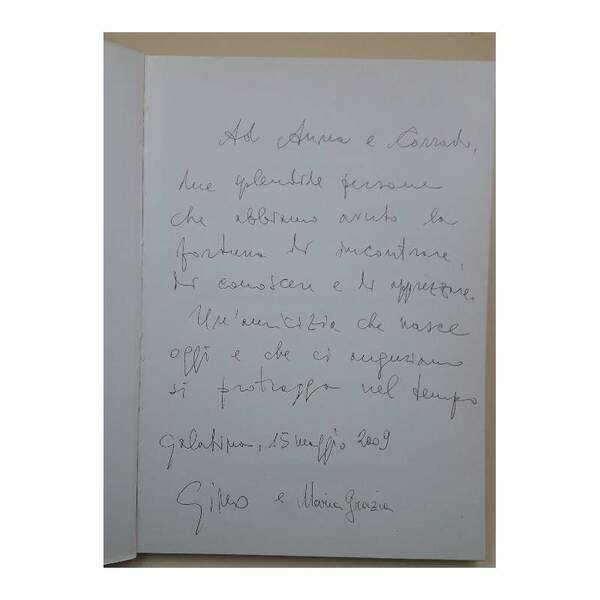 Ad Anna e Corrado,
due splendide persone
che abbiamo avuto la
fortuna di incontrare,
di conoscere e di apprezzare.
Un'amicizia che nasce
oggi e che ci auguriamo
si protragga nel tempo
Galatina, 15 maggio 2009
Gino e Maria Grazia